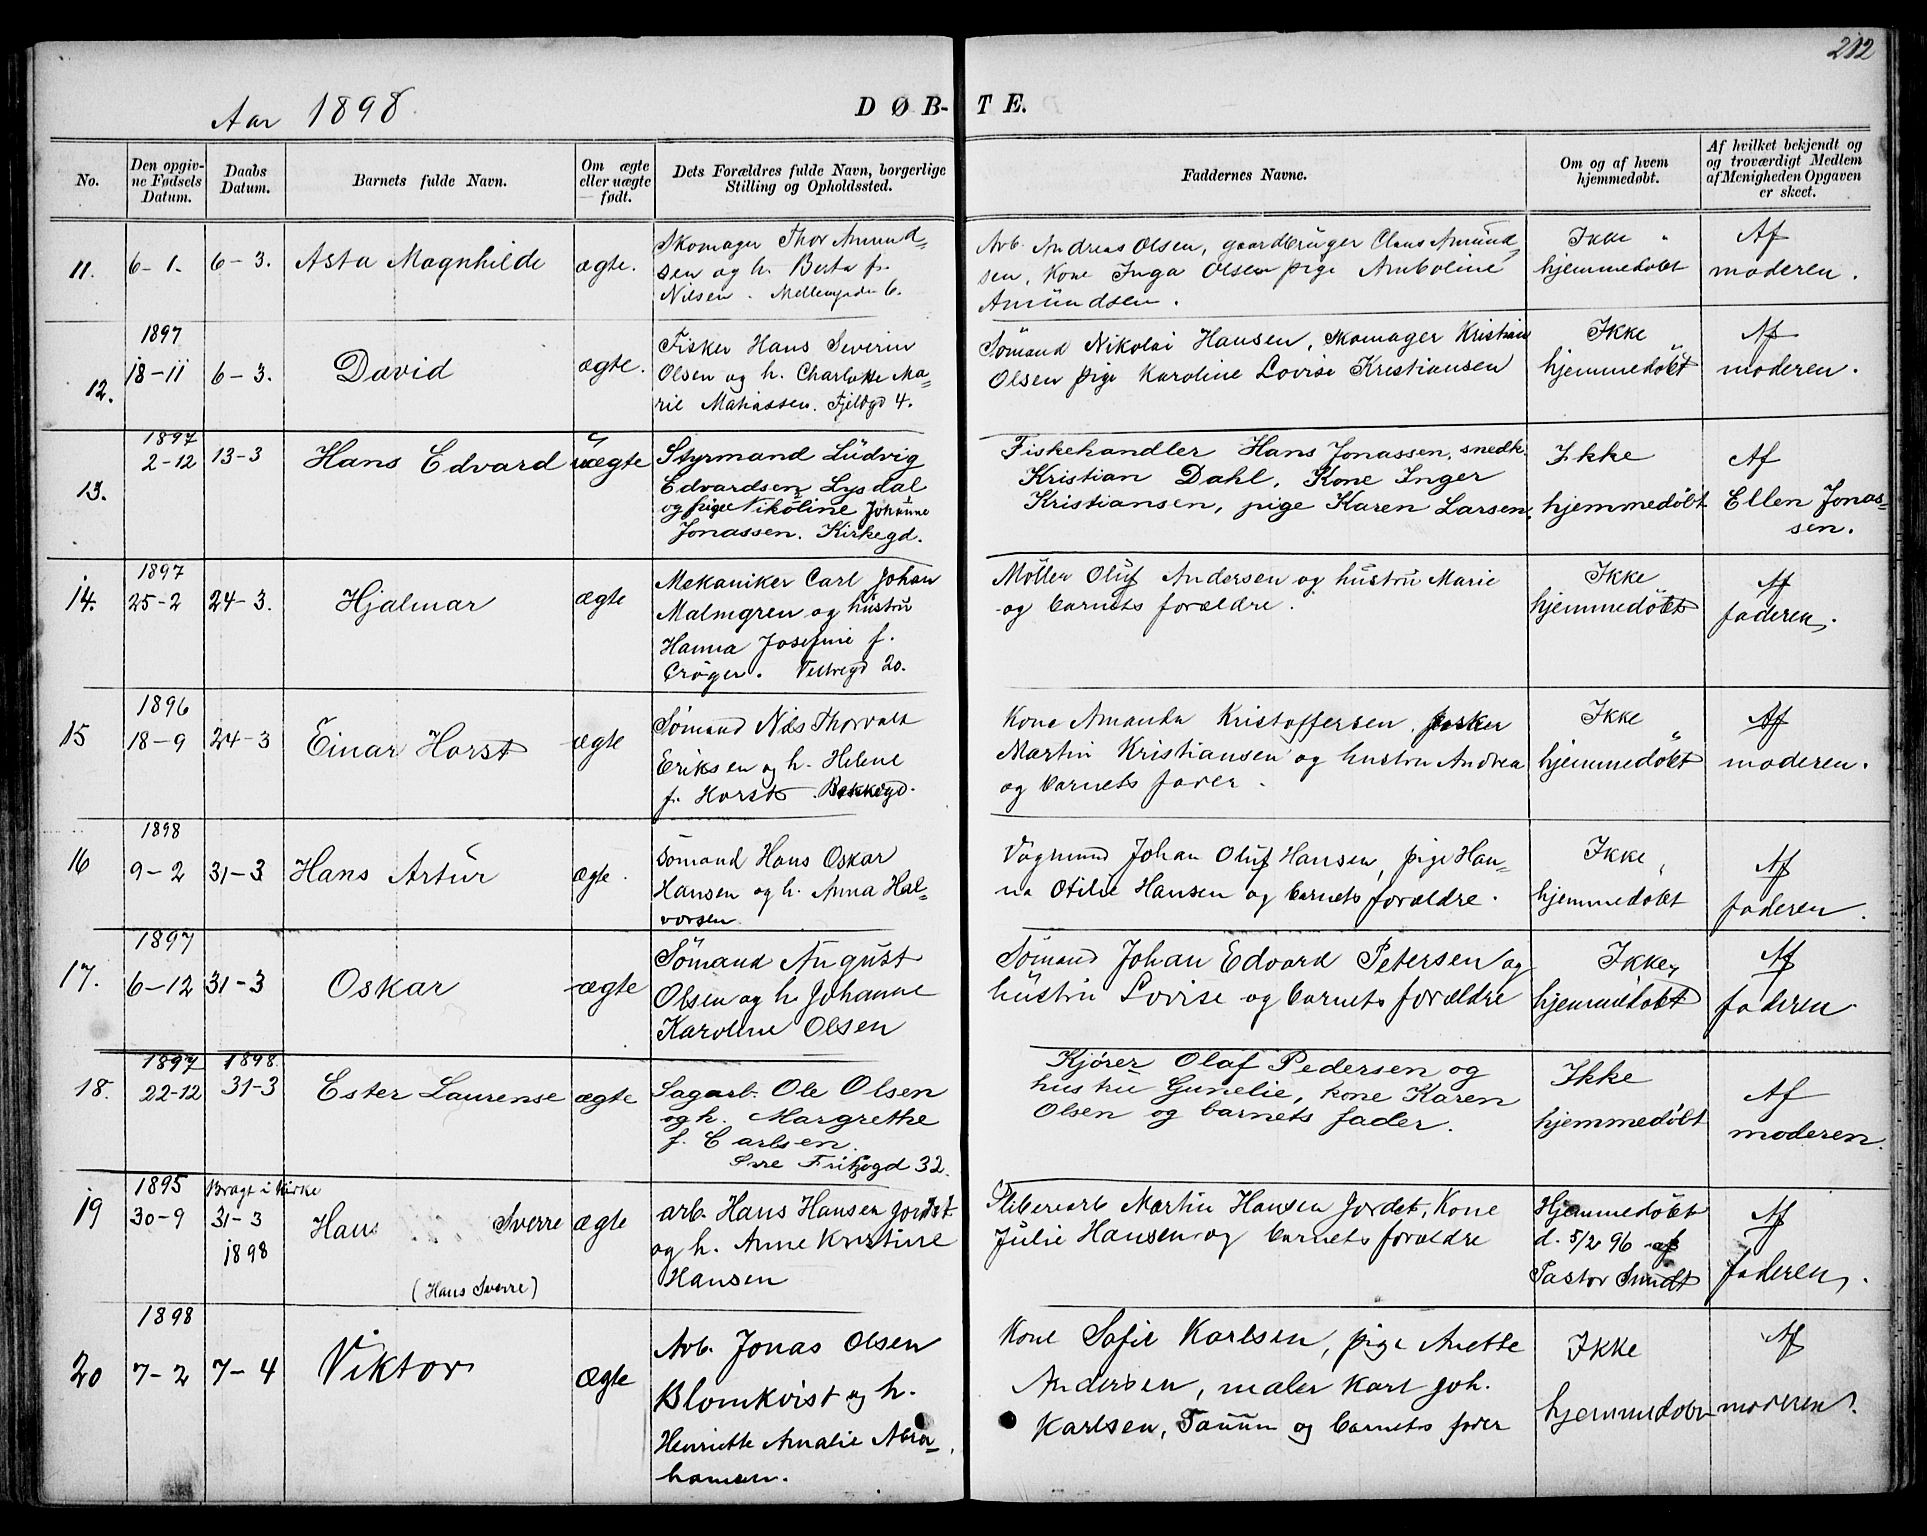 212
Aar 1898.
DØB-TE.
No.
Den opgiv-
ne Fødsels
Datum.
Daabs
Datum.
Barnets fulde Navn.
Om ægte
eller uægte
født.
Dets Forældres fulde Navn, borgerlige
Stilling og Opholdssted.
Faddernes Navne.
Om og af hvem
hjemmedøbt.
Af hvilket bekjendt og
og troværdigt Medlem
af Menigheden Opgaven
er skeet.
11. 6-1. 6-3. Asta Magnhilde ægte.
Skomager Thor Amund-
sen og h. Berta f.
Nilsen. Mellemgada 6.
Arb. Andreas Olsen, gaardbruger Claus Amund-
sen, Kone Inga Olsen pige Amboline
Amundsen.
Ikke
hjemmedøbt
Af
moderen.
12. 1897
18-11 6-3. David ægte.
Fisker Hans Severin
Olsen og h. Charlotte Ma-
rie Matiassen. Fjeldgd 4.
Sømand Nikolai Hansen, skomager Kristian
Olsen pige Karoline Lovise Kristiansen
Ikke
hjemmedøbt
Af
moderen.
13. 1897
2-12 13-3 Hans Edvard uægte
Styrmand Ludvig
Edvardsen Lysdal
og pige Nikoline Johanne
Jonassen. Kirkegd.
Fiskehandler Hans Jonassen, snedk.
Kristian Dahl, Kone Inger
Kristiansen, pige Karen Larsen.
Ikke
hjemmedøbt
Af
Ellen Jonas-
sen.
14. 1897
25-2 24-3. Hjalmar ægte
Mekaniker Carl Johan
Malmgren og hustru
Hanna Josefine f.
Crøger. Vestregd 20.
Møller Oluf Andersen og hustru Marie
og barnets forældre.
Ikke
hjemmedøbt
Af
faderen.
15 1896
18-9 24-3 Einar Horst ægte
Sømand Nils Thorvald
Eriksen og h. Helene
f. Horst. Bakkegd.
Kone Amanda Kristoffersen,
Martin Kristiansen og hustru Andrea
og barnets fader.
Ikke
hjemmedøbt
Af
moderen.
16 1898
9-2 31-3 Hans Artur ægte.
Sømand Hans Oskar
Hansen og h. Anna Hal-
vorsen.
Vognmand Johan Oluf Hansen, pige Han-
na Otilie Hansen og barnets forældre.
Ikke
hjemmedøbt
Af
faderen.
17. 1897
6-12 31-3 Oskar ægte
Sømand August
Olsen og h. Johanne
Karoline Olsen
Sømand Johan Edvard Petersen og
hustru Lovise og barnets forældre
Ikke
hjemmedøbt
Af
faderen.
18. 1897 1898
22-12 31-3 Ester Laurense ægte
Sagarb. Ole Olsen
og h. Margrethe
f. Carlsen.
Øvre Fritzøgd 32.
Kjører Olaf Pedersen og
hustru Gunelie, kone Karen
Olsen og barnets fader.
Ikke
hjemmedøbt
Af
moderen.
19 1895 Bragt i Kirke
30-9 31-3
1898
Hans Sverre ægte
(Hans Sverre)
arb. Hans Hansen Jordet
og h. Anne Kristine
Hansen
Sliberiarb Martin Hansen Jordet, Kone
Julie Hansen og barnets forældre
Hjemmedøbt
d. 5/2 96 af
Pastor Smidt
Af
faderen.
20 1898
7-2 7-4 Viktor Ægte
Arb. Jonas Olsen
Blomkvist og h.
Henriette Amalie Abra-
hamsen.
Kone Sofie Karlsen, pige Anette
Andersen, maler Karl Joh.
Karlsen, Taum og barnets fader
Ikke
hjemmedøbt
Af
moderen.